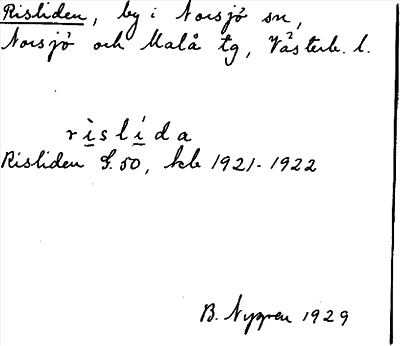 Risliden, by i Norsjö sn,
Norsjö och Malå tg, Västerb. l.
rìslída
Risliden S. 50, kb 1921-1922
B. Nygren 1929